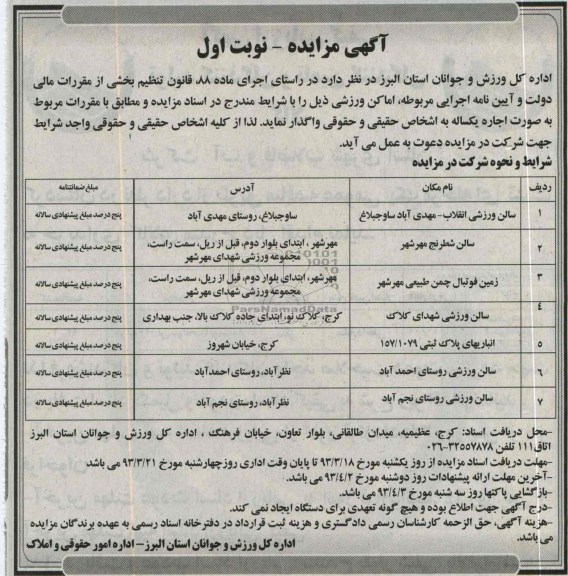 آگهی مزایده - نوبت اول
اداره کل ورزش و جوانان استان البرز در نظر دارد در راستای اجرای ماده ۸۸، قانون تنظیم بخشی از مقررات مالی
دولت و آیین نامه اجرایی مربوطه، اماکن ورزشی ذیل را با شرایط مندرج در اسناد مزایده و مطابق با مقررات مربوط
به صورت اجاره یکساله به اشخاص حقیقی و حقوقی واگذار نماید. لذا از کلیه اشخاص حقیقی و حقوقی واجد شرایط
جهت شرکت در مزایده دعوت به عمل می آید.
شرایط و نحوه شرکت در مزایده
ردیف نام مکان آدرس مبلغ ضمانتنامه
۱ سالن ورزشی انقلاب- مهدی آباد ساوجبلاغ ساوجبلاغ، روستای مهدی آباد پنج درصد مبلغ پیشنهادی سالانه
۲ سالن شطرنج مهرشهر مهرشهر، ابتدای بلوار دوم، قبل از ریل، سمت راست، مجموعه ورزشی شهدای مهرشهر پنج درصد مبلغ پیشنهادی سالانه
۳ زمین فوتبال چمن طبیعی مهرشهر مهرشهر، ابتدای بلوار دوم، قبل از ریل، سمت راست، مجموعه ورزشی شهدای مهرشهر پنج درصد مبلغ پیشنهادی سالانه
ParsNamadData
۴ سالن ورزشی شهدای کلاک کرج، کلاک نو، ابتدای جاده کلاک بالا، جنب بهداری پنج درصد مبلغ پیشنهادی سالانه
۵ انباریهای پلاک ثبتی ۱۵۷/۱۰۷۹ کرج، خیابان شهروز پنج درصد مبلغ پیشنهادی سالانه
۶ سالن ورزشی روستای احمد آباد نظرآباد، روستای احمدآباد پنج درصد مبلغ پیشنهادی سالانه
۷ سالن ورزشی روستای نجم آباد نظرآباد، روستای نجم آباد پنج درصد مبلغ پیشنهادی سالانه
-محل دریافت اسناد: کرج، عظیمیه، میدان طالقانی، بلوار تعاون، خیابان فرهنگ ، اداره کل ورزش و جوانان استان البرز
اتاق۱۱۱ تلفن ۳۲۵۵۷۸۷۸-۰۲۶
-مهلت دریافت اسناد مزایده از روز یکشنبه مورخ ۹۳/۳/۱۸ تا پایان وقت اداری روزچهارشنبه مورخ ۹۳/۳/۲۱ می باشد
-آخرین مهلت ارائه پیشنهادات روز دوشنبه مورخ ۹۳/۴/۲ می باشد.
-بازگشایی پاکتها روز سه شنبه مورخ ۹۳/۴/۳ می باشد.
-درج آگهی جهت اطلاع بوده و هیچ گونه تعهدی برای دستگاه ایجاد نمی کند.
-هزینه آگهی، حق الزحمه کارشناسان رسمی دادگستری و هزینه ثبت قرارداد در دفترخانه اسناد رسمی به عهده برندگان مزایده
می باشد.
اداره کل ورزش و جوانان استان البرز- اداره امور حقوقی و املاک